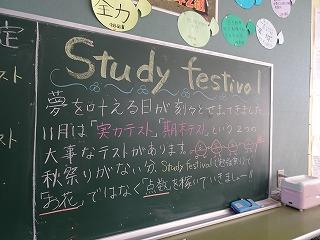 全力
定
Study festival
夢を叶える日が刻々とせまってきました
11月は「実力テスト」「期末テスト」という2つの
大事なテストがあります。
秋祭りがない分、Study Festival(勉強祭り)で
「お花」ではなく「点数」を稼いでいきましょー!!
テスト
スト